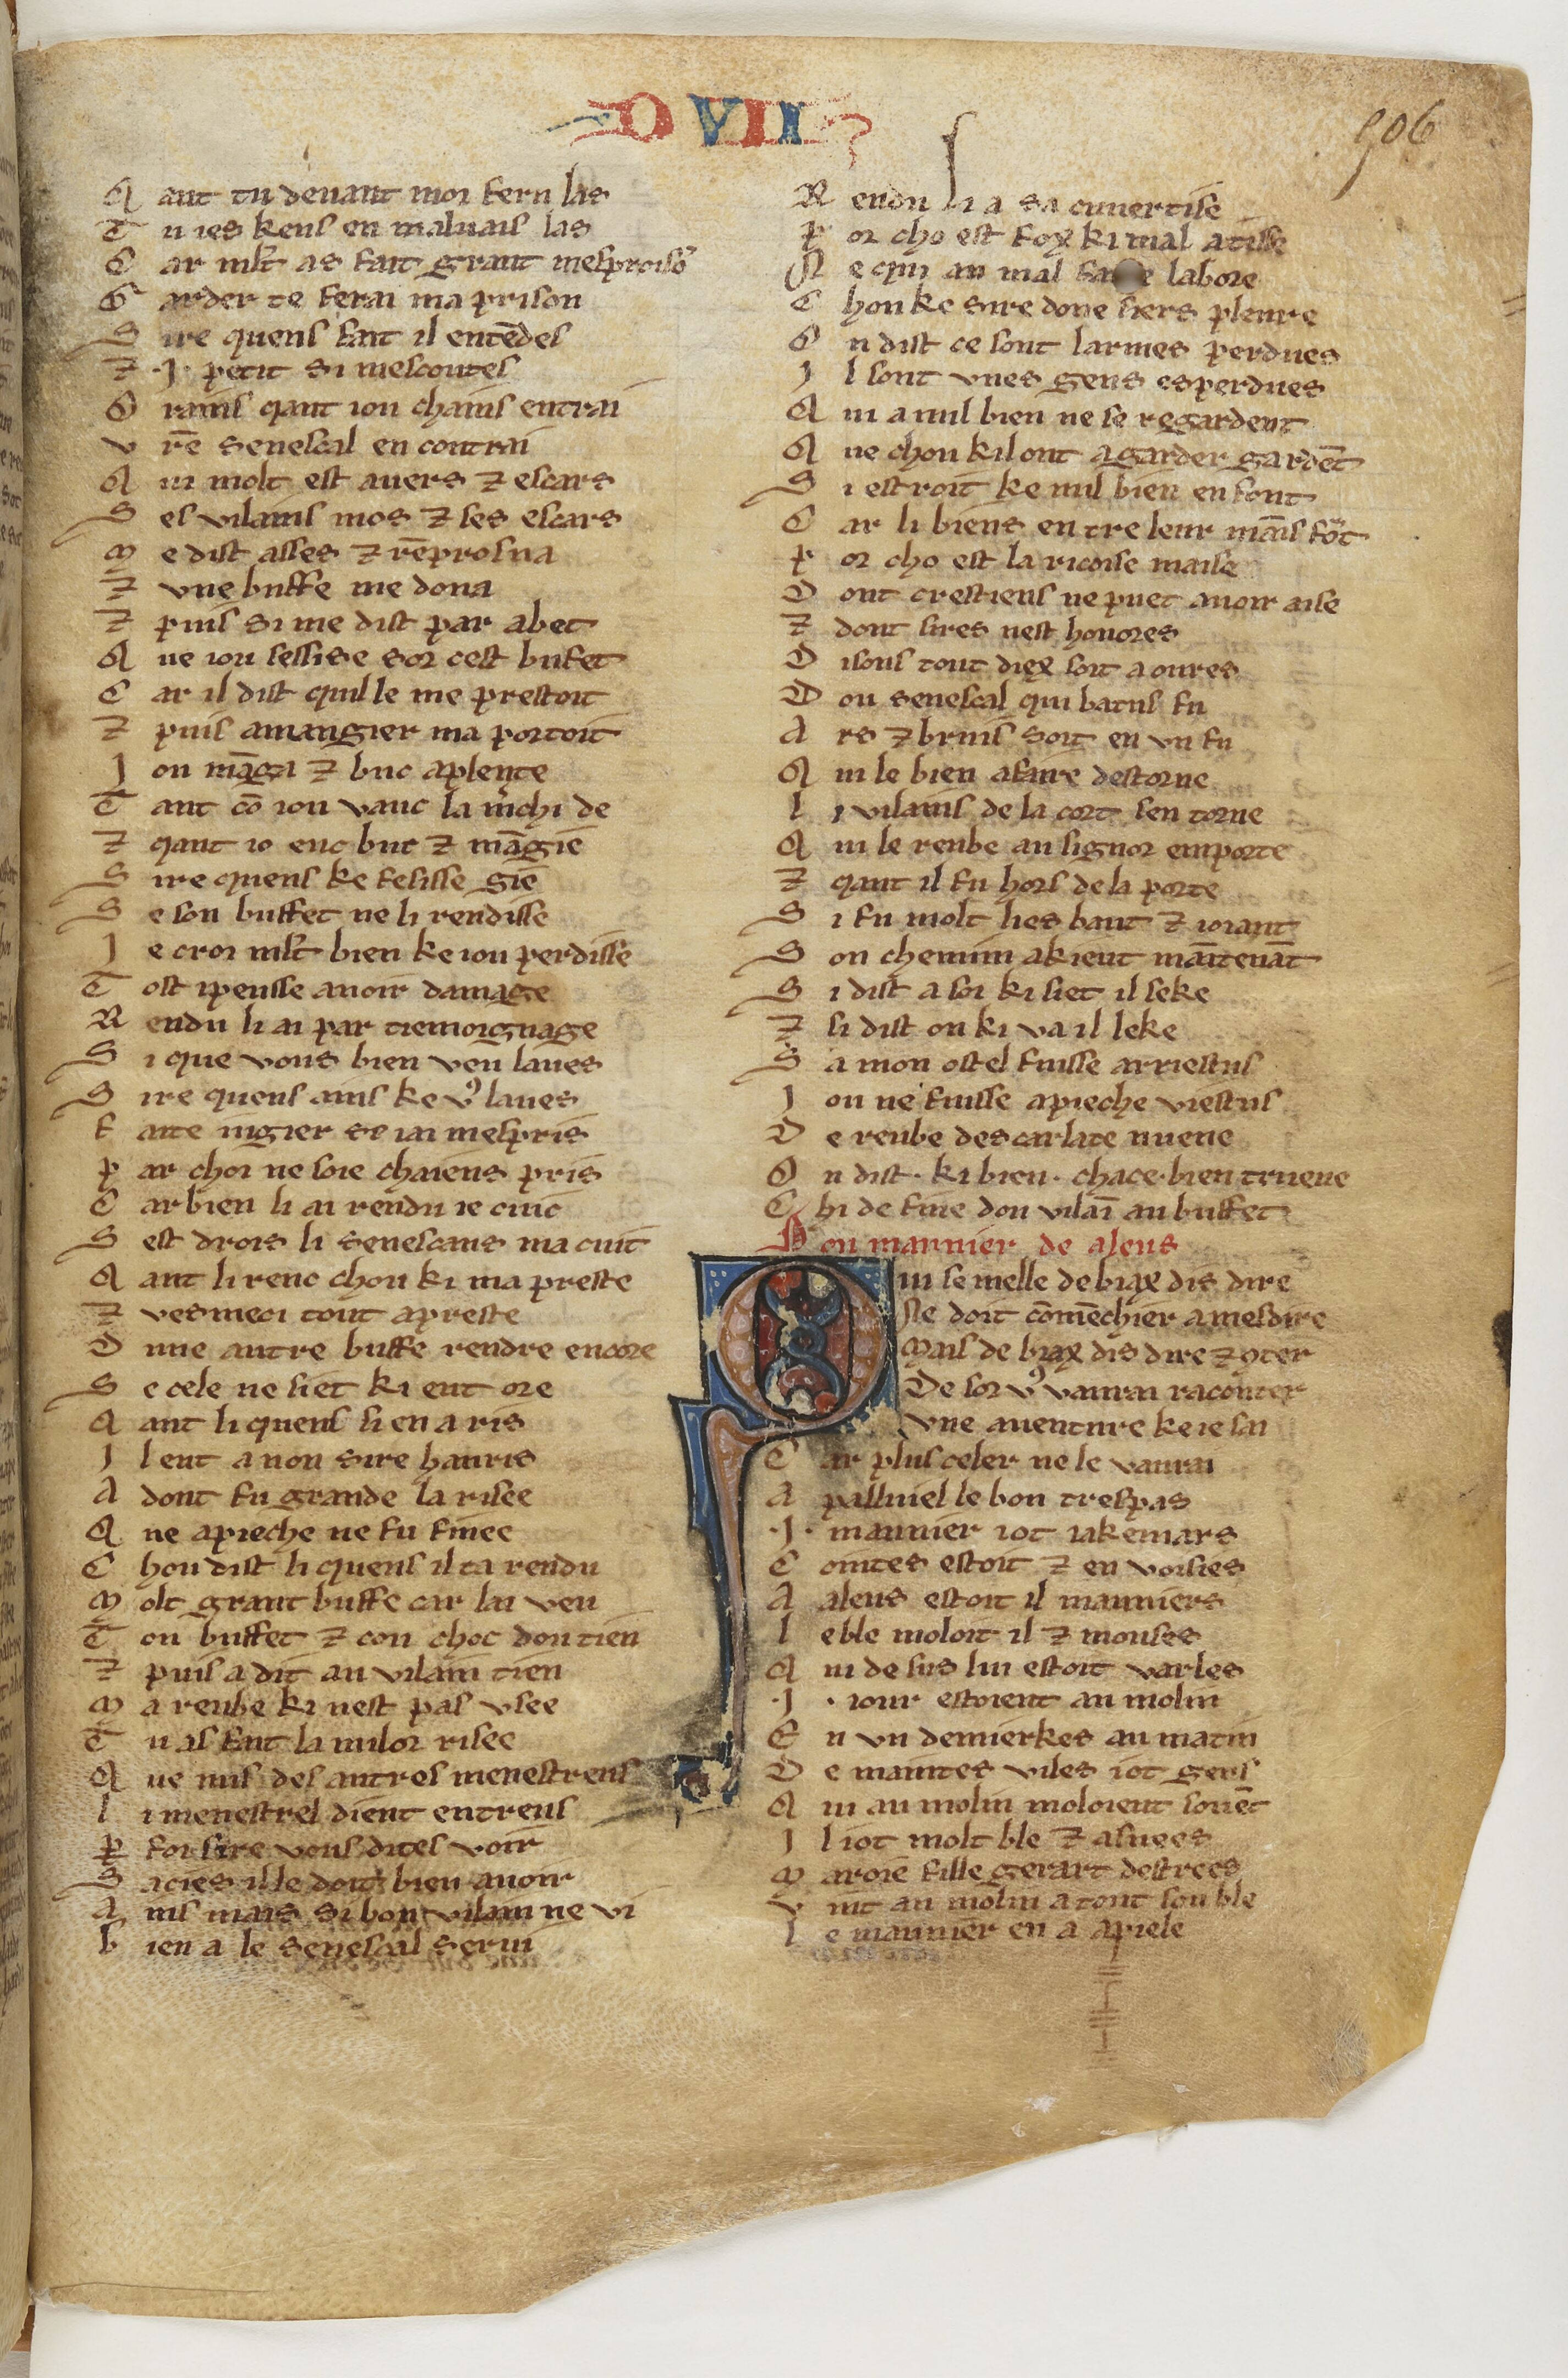 O VII
506
Q ant tu deuant moi feru las
T u ies keus en maluais las
C ar mlt as fait grant mespriso
G arder te ferai ma prison
S ire quens fait il entēdes
⁊ .I. petit si mescoutes
O rains qant iou chaiens entrai
V rē senescal encontrai
Q ui molt est auers ⁊ escars
S es vilains mos ⁊ ses escars
M e dist asses ⁊ rēprosna
⁊ vne buffe me dona
⁊ puis si me dist par abet
Q ue iou sessise sor cest bufet
C ar il dist quil le me prestoit
⁊ puis amangier ma portoit
I ou māgai ⁊ buc aplente
T ant cō iou vauc la mchi de
⁊ qant io euc but ⁊ māgie
S ire quens ke fesisse gie
S e son buffet ne li rendisse
I e croi mlt bien ke iou perdisse
T ost ipeusse auoir damage
R endu li ai par tiemoignage
S i que vous bien veu laues
S ire quens ains ke vꝰ laues
F aite iugier se iai mespris
P ar choi ne soie chaiens pris
C ar bien li ai rendu ie cuic
S est drois li senescaus ma cuit
Q ant li renc chou ki ma preste
⁊ vesmeci tout apreste
D une autre buffe rendre encore
S e cele ne siet ki eut ore
Q ant li quens si en a ris
I l eut a non sire hauris
A dont fu grande la risee
Q ue apieche ne fu finee
C hou dist li quens il ta rendu
M olt grant buffe car lai veu
T ou buffet ⁊ cou choc don tien
⁊ puis a dit au vilain tien
M a reube ki nest pas vsee
T u as fait la millor risee
Q ue nus des autres menestreus
L i menestrel dient entreus
P foi sire vous dites voir
S acies il le doit bien auoir
A ins mais si bon vilain ne vi
B ien a le senescal serui
R endu li a sa cuuertise
P or cho est fox ki mal atise
N e qui au mal faire labore
C hou ke sire done siers pleure
O n dist ce sont larmes perdues
I l sont vnes gens esperdues
Q ui a nul bien ne se regardent
Q ue chou kil ont agarder gardēt
S i estroit ke nul bien en font
C ar li biens entre leur māis fōt
P or cho est la ricoise maise
D ont crestiens ne puet auoir aise
⁊ dont sires nest honores
D isous tout diex soit aoures
D ou senescal qui batus fu
A rs ⁊ bruis soit en vn fu
Q ui le bien afaire destorne
L i vilains de la cort sen torne
Q ui le reube au signor emporte
⁊ qant il fu hors de la porte
S i fu molt lies baut ⁊ ioiant
S on chemin akieut māitenāt
S i dist a soi ki siet il seke
⁊ si dist on ki va il leke
S a mon ostel fuisse arriestus
I ou ne fuisse apieche viestus
D e reube descarlate nueue
O n dist . ki bien . chace . bien trueue
C hi de fine dou vilaī au buffet
D ou maunier de aleus
Q ui se melle de biax dis dire
Ne doit cōmēchier amesdire
Mais de biax dis dire ⁊ 9ter
De sor vꝰ vaurai raconter
Vne auenture ke ie sai
C ar plus celer ne le vaurai
A palluiel le bon trespas
.I. maunier iot iakemars
C ointes estoit ⁊ en voisies
A aleus estoit il mauniers
L e ble moloit il ⁊ mouses
Q ui de sus lui estoit varles
.I. iour estoient au molin
E n vn demierkes au matin
D e maintes viles iot gens
Q ui au molin moloient souēt
I l iot molt ble ⁊ asnees
M aroie fille gerart destrees
V int au molin a tout sou ble
L e maunier en a apiele